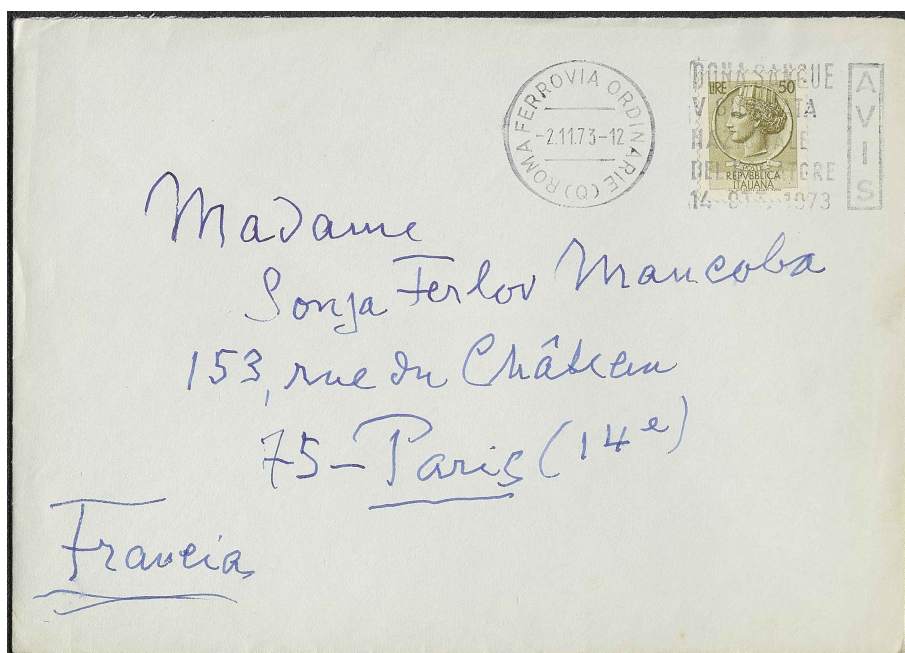 ROMA FERROVIA ORDINARIE (Q)
-2.11.73-12
DONA SANGUE
NAZIONALE
DEL DONATORE
14 1973
AVIS
LIRE 50
POSTE
REPVBBLICA
ITALIANA
Madame
Sonja Ferlov Mancoba
153, rue du Château
75-Paris (14e)
Francia